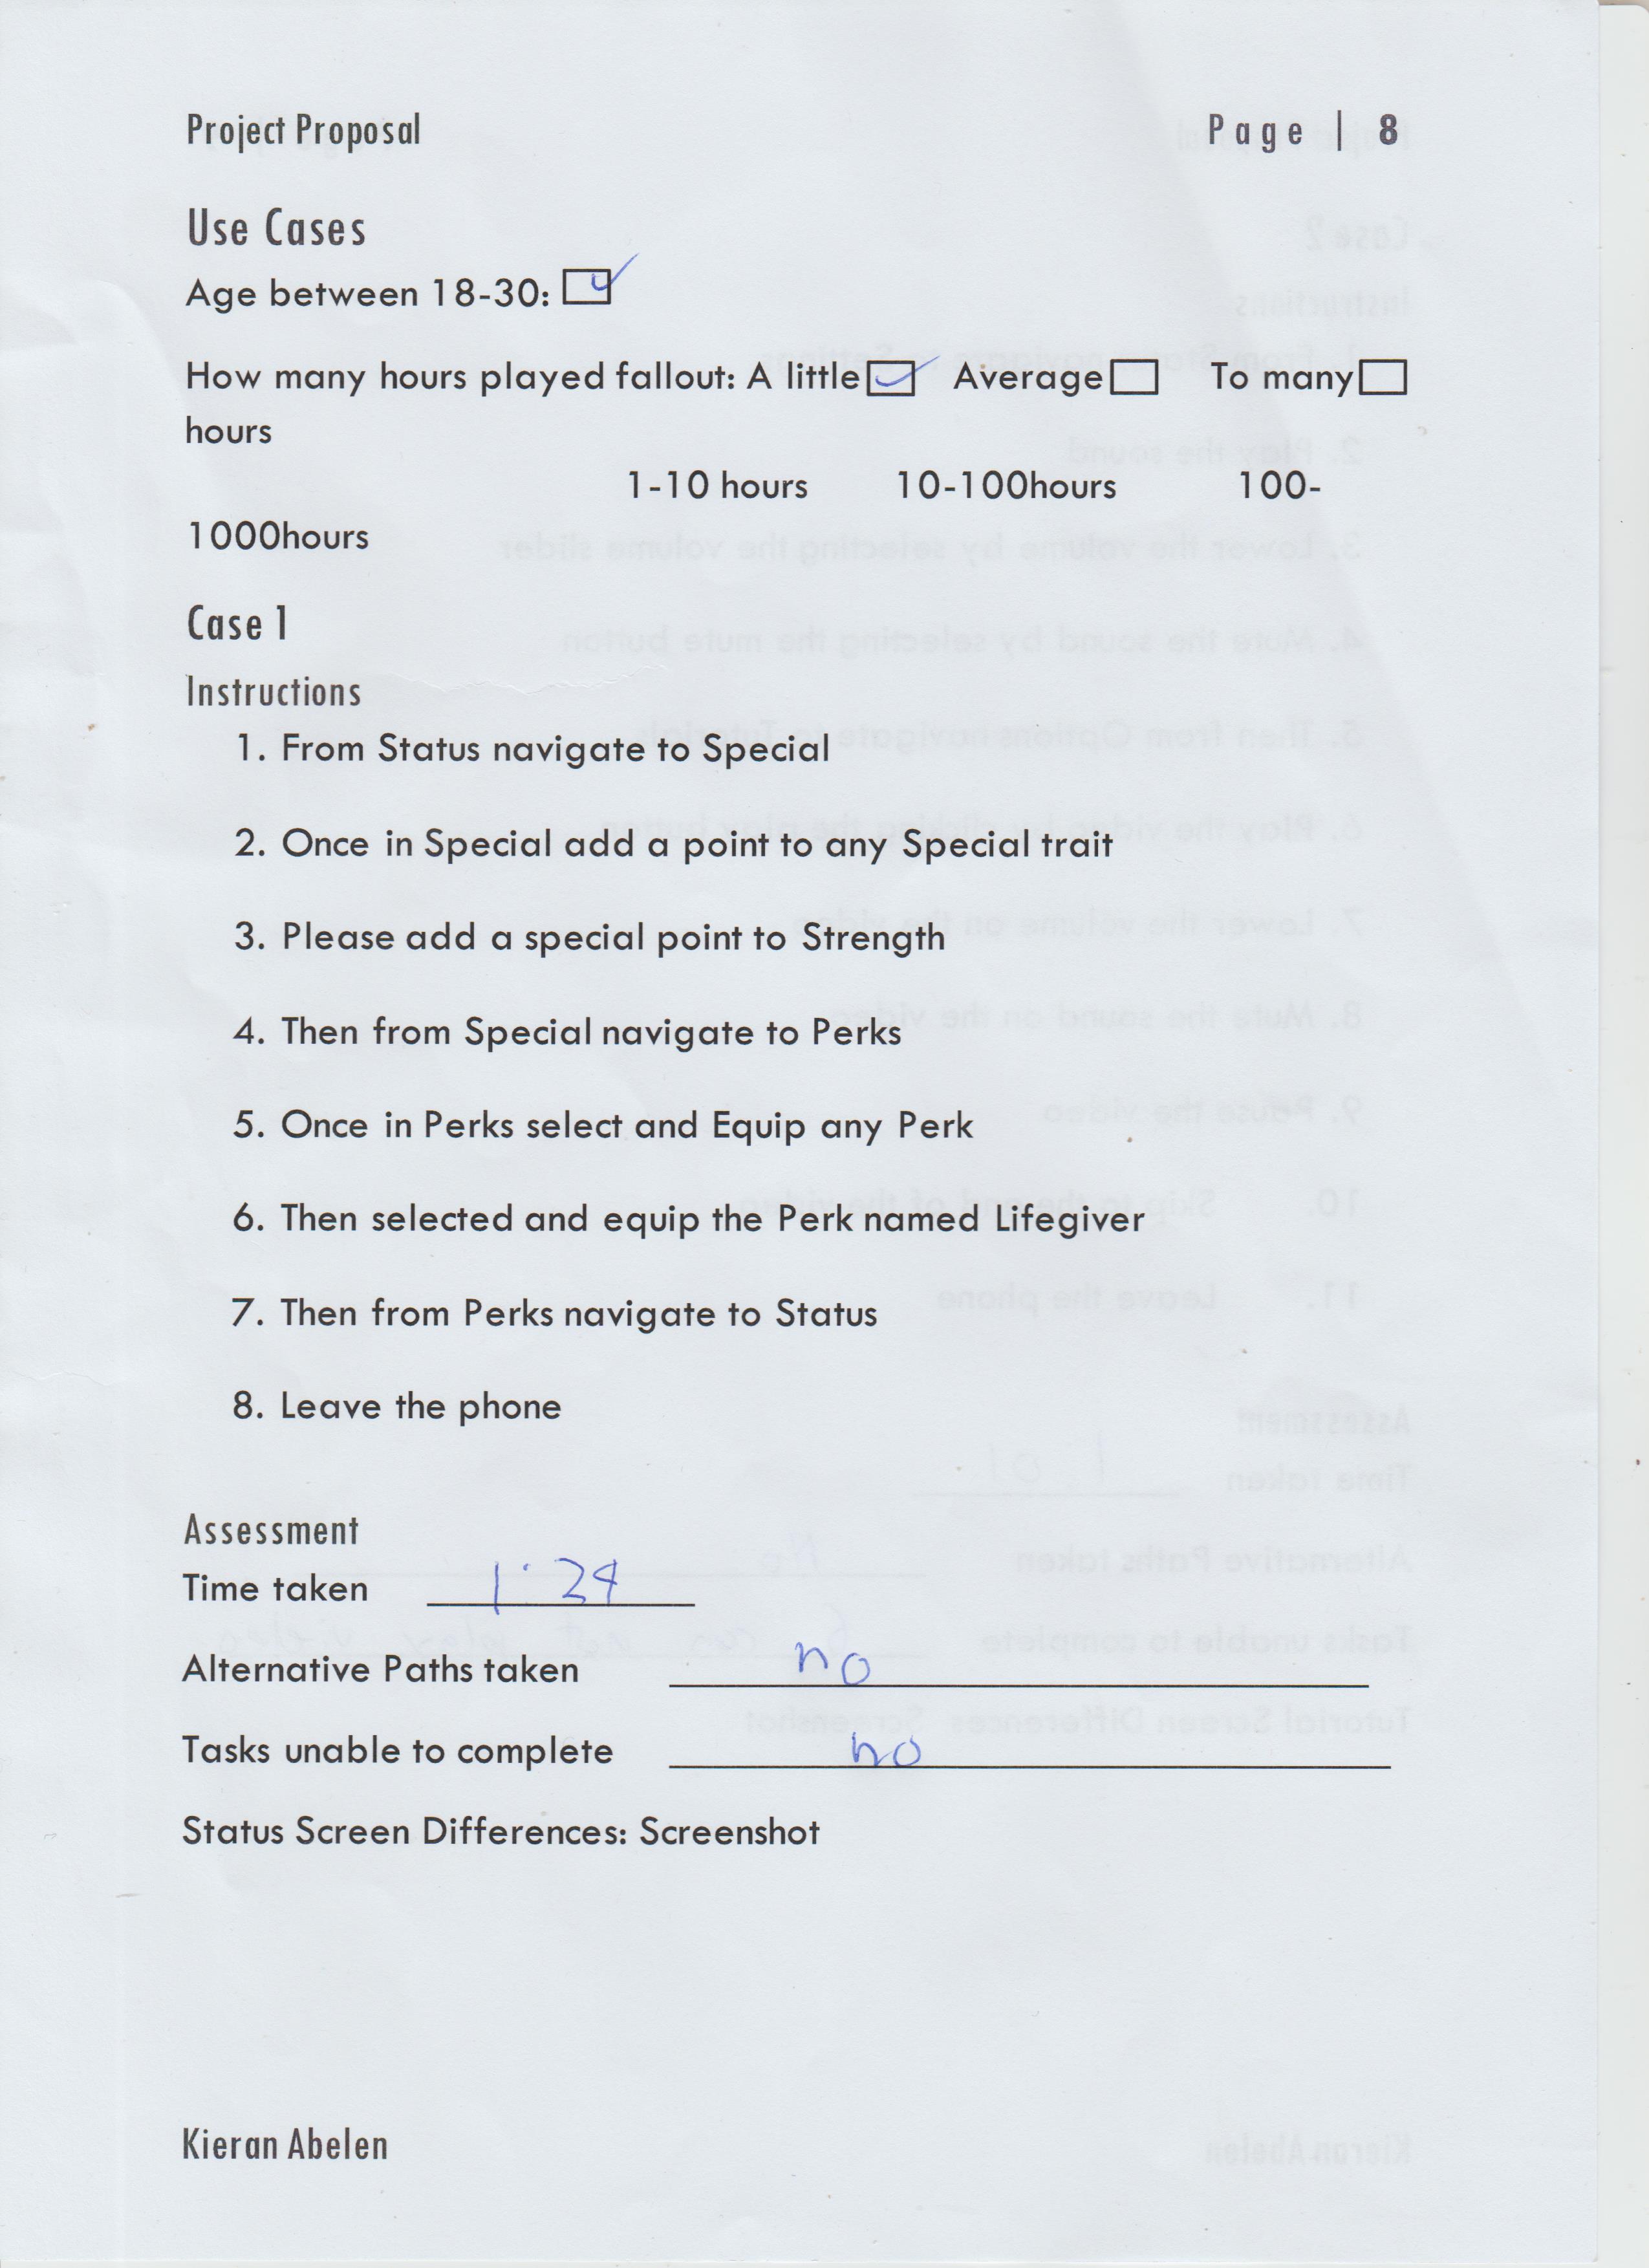 Project Proposal Page | 8
Use Cases
Age between 18-30: ✓
How many hours played fallout: A little ✓ Average ☐ To many ☐
hours
1-10 hours 10-100hours 100-
1000hours
Case 1
Instructions
1. From Status navigate to Special
2. Once in Special add a point to any Special trait
3. Please add a special point to Strength
4. Then from Special navigate to Perks
5. Once in Perks select and Equip any Perk
6. Then selected and equip the Perk named Lifegiver
7. Then from Perks navigate to Status
8. Leave the phone
Assessment
Time taken 1:24
Alternative Paths taken no
Tasks unable to complete no
Status Screen Differences: Screenshot
Kieran Abelen